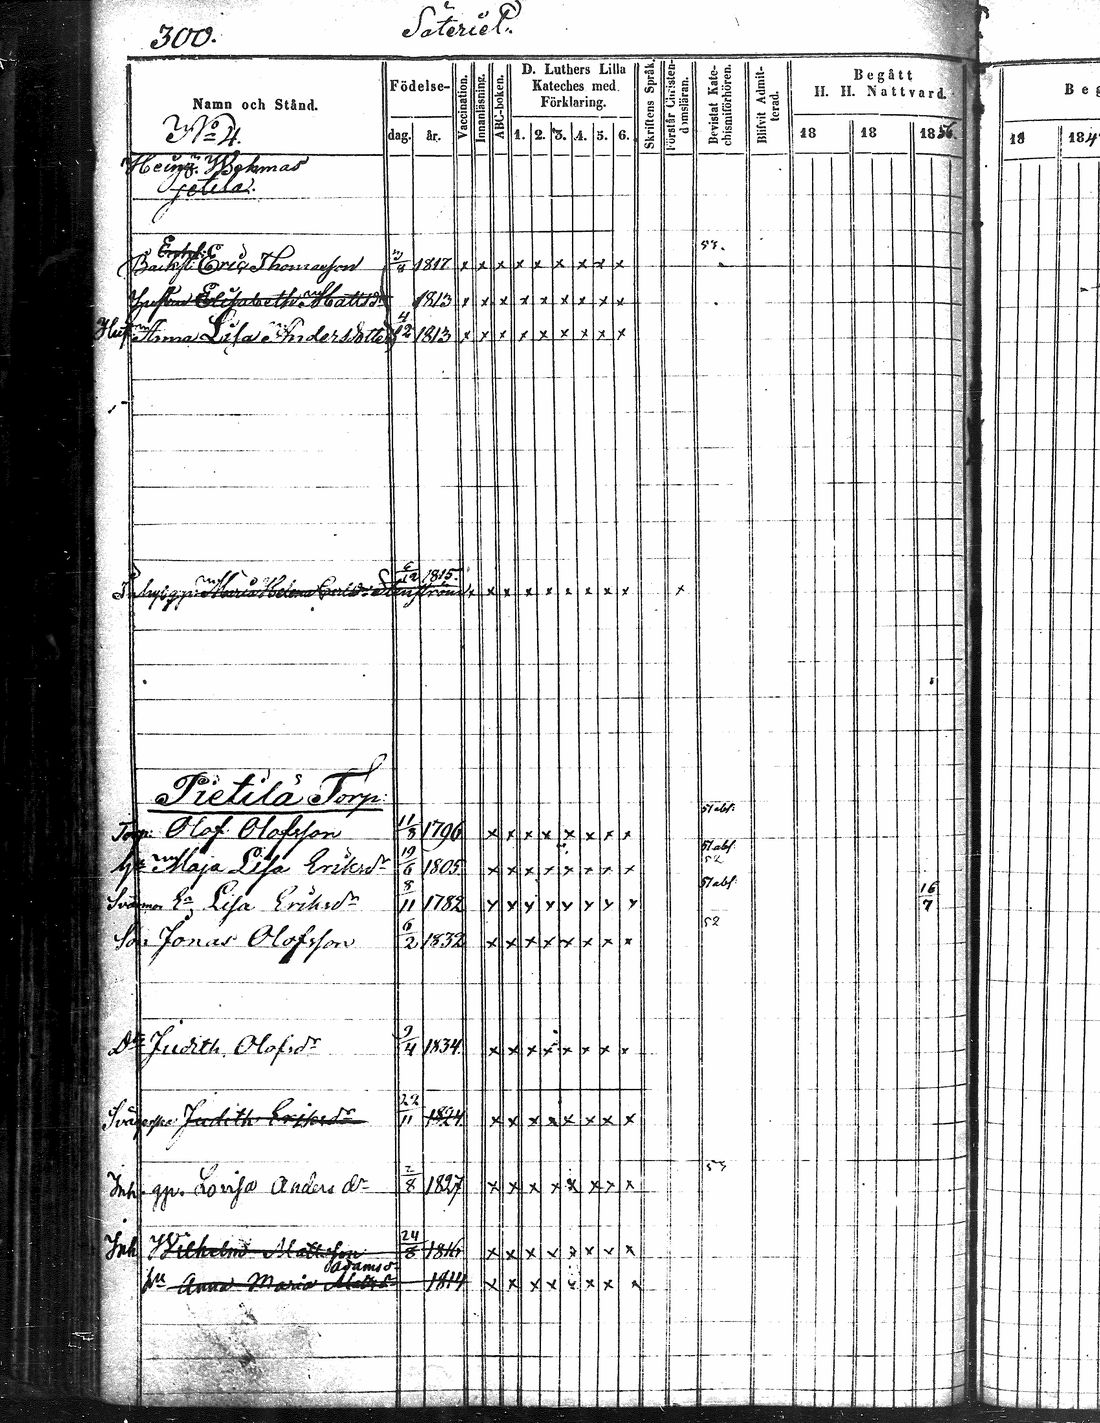 300.
Säteriet.
Namn och Stånd.
Födelse-
dag.
år.
Vaccination.
Innanläsning.
ABC-boken.
D. Luthers Lilla
Kateches med
Förklaring.
1. 2. 3. 4. 5. 6.
Skriftens Språk.
Förstår Christen-
domsläran.
Bevistat Kate-
chismiförhören.
Blifvit Admit-
terad.
Begått
H. H. Nattvard.
18 18 1856.
Beg
18 184
No 4.
jetilä.
Enkl.
Backst. Eric Thomasson 1817 x x x x x x x x x 53.
Hustru Elisabeth Mattsdr 1813 x x x x x x x x x
Hust. Anna Lisa Andersdotter 4/12 1813 x x x x x x x x x
Inhysigp. Maria Helena Stenström 6/12 1815. x x x x x x x x x x
Pietilä Torp.
Torp. Olof Olofsson 11/3 1796 x x x x x x x x 51 abs.
Maja Lisa Eriksdr 19/6 1805 x x x x x x x x 51 abs. 52
Svärmor Ea Lisa Eriksdr 8/11 1782 x x x x x x x x 51 abs. 16/7
Son Jonas Olofsson 6/2 1832 x x x x x x x x 52
Dr Judith Olofsdr 9/4 1834 x x x x x x x x
Judith Eriksdr 22/11 1824 x x x x x x x x
Inh. gp. Lovisa Andersdr 2/8 1827 x x x x x x x x 53
Inh Wilhelm Mattsson 24/8 1816 x x x x x x x x
Adamsdr
hu Anna Maria Mattsdr 1814 x x x x x x x x